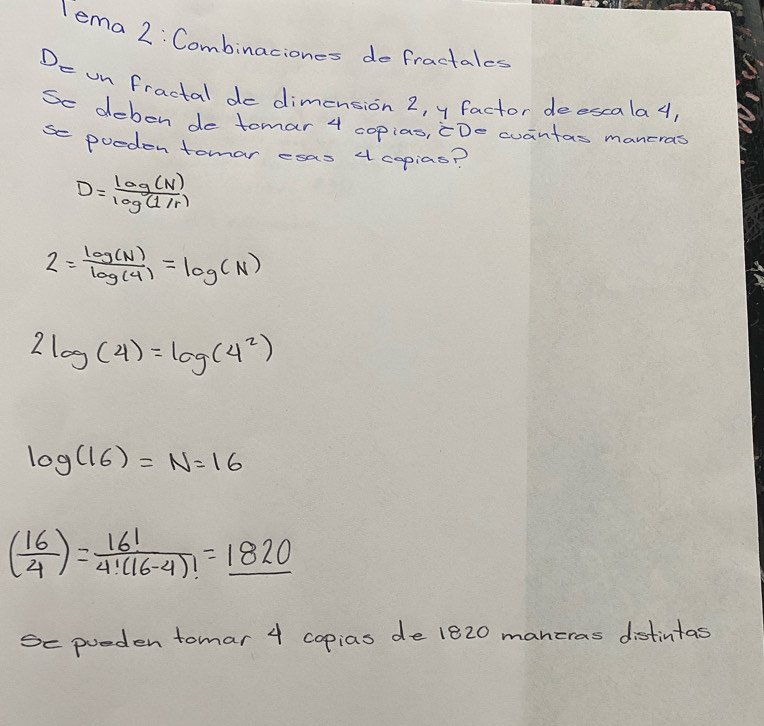 Tema 2: Combinaciones de fractales
De un fractal de dimensión 2, y factor de escala 4,
se deben de tomar 4 copias, ¿De cuántas maneras
se pueden tomar esas 4 copias?
D = log(N) / log(1/r)
2 = log(N) / log(4) = log(N)
2 log(4) = log(4²)
log(16) = N = 16
(16/4) = 16! / 4!(16-4)! = 1820
Se pueden tomar 4 copias de 1820 maneras distintas